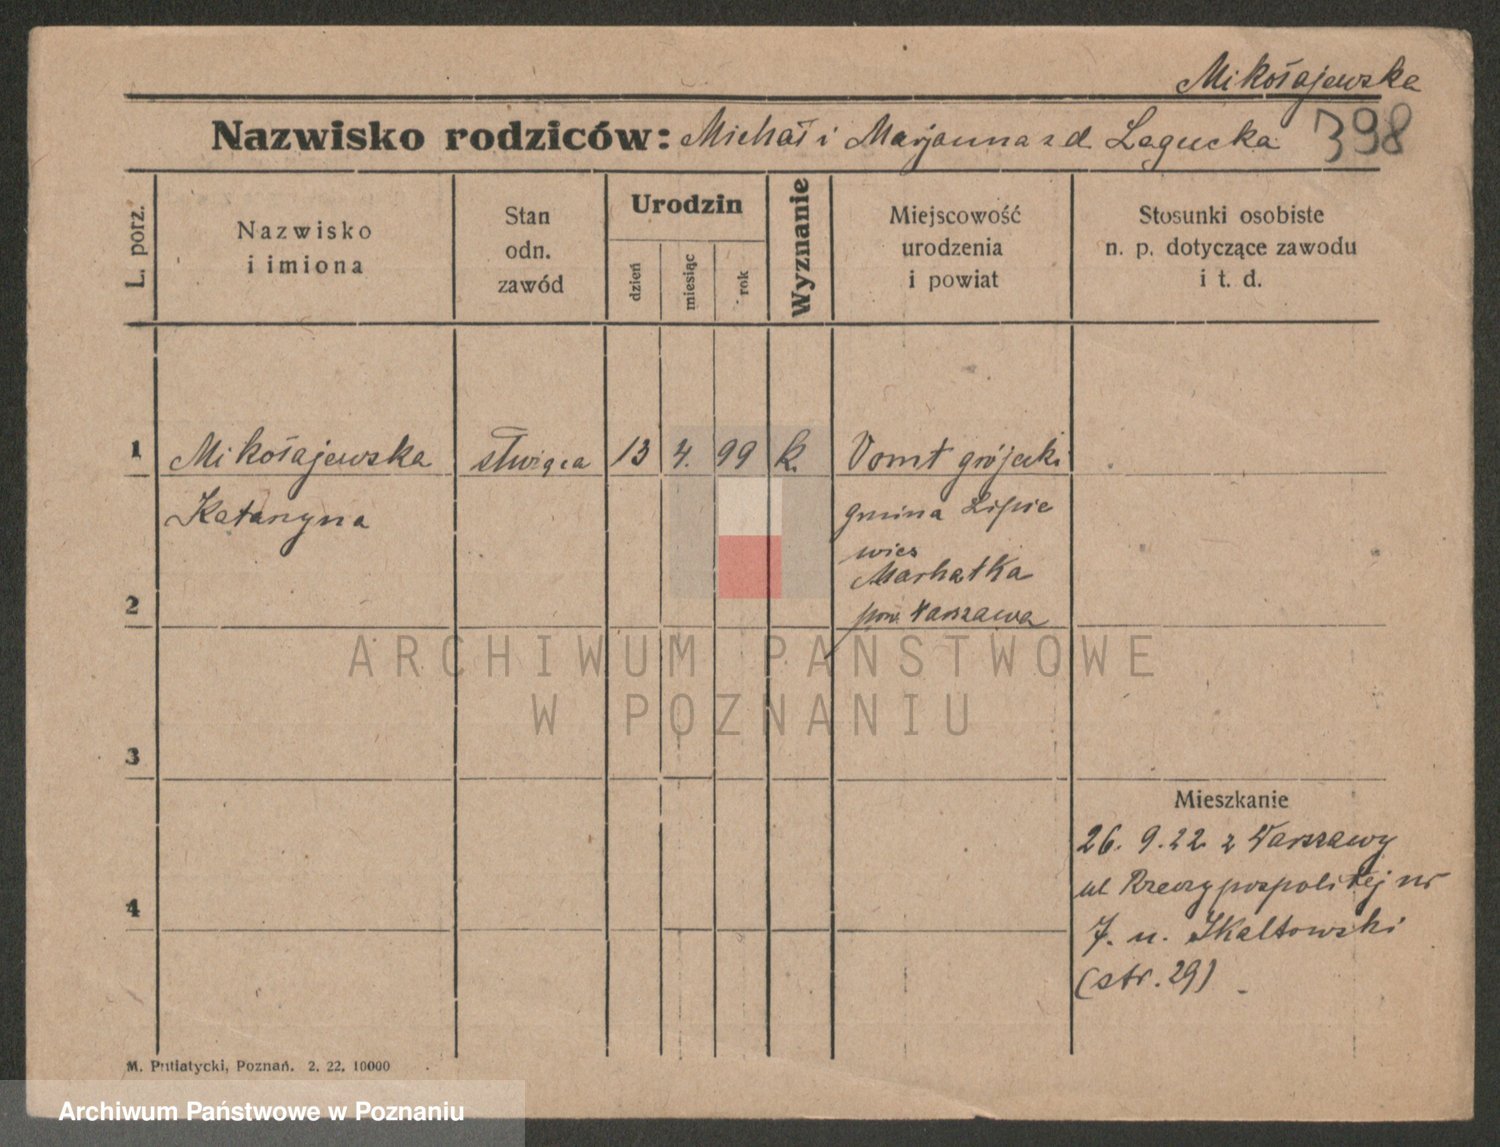 Mikołajewska
Nazwisko rodziców: Michał i Marjanna z d. Lagucka 398
L. porz.
Nazwisko
i imiona
Stan
odn.
zawód
Urodzin
dzień
miesiąc
rok
Wyznanie
Miejscowość
urodzenia
i powiat
Stosunki osobiste
n. p. dotyczące zawodu
i t. d.
1 Mikołajewska służąca 13 4. 99 k. grójecki
Katarzyna
gmina Lipie
wieś
Marhatka
pow. Warszawa
2
3
4
Mieszkanie
26. 9. 22 z Warszawy
ul Rzeczypospolitej nr
7. u. Skaltowski
(str. 29)
M. Putiatycki, Poznań. 2. 22. 10000
ARCHIWUM PAŃSTWOWE
W POZNANIU
Archiwum Państwowe w Poznaniu